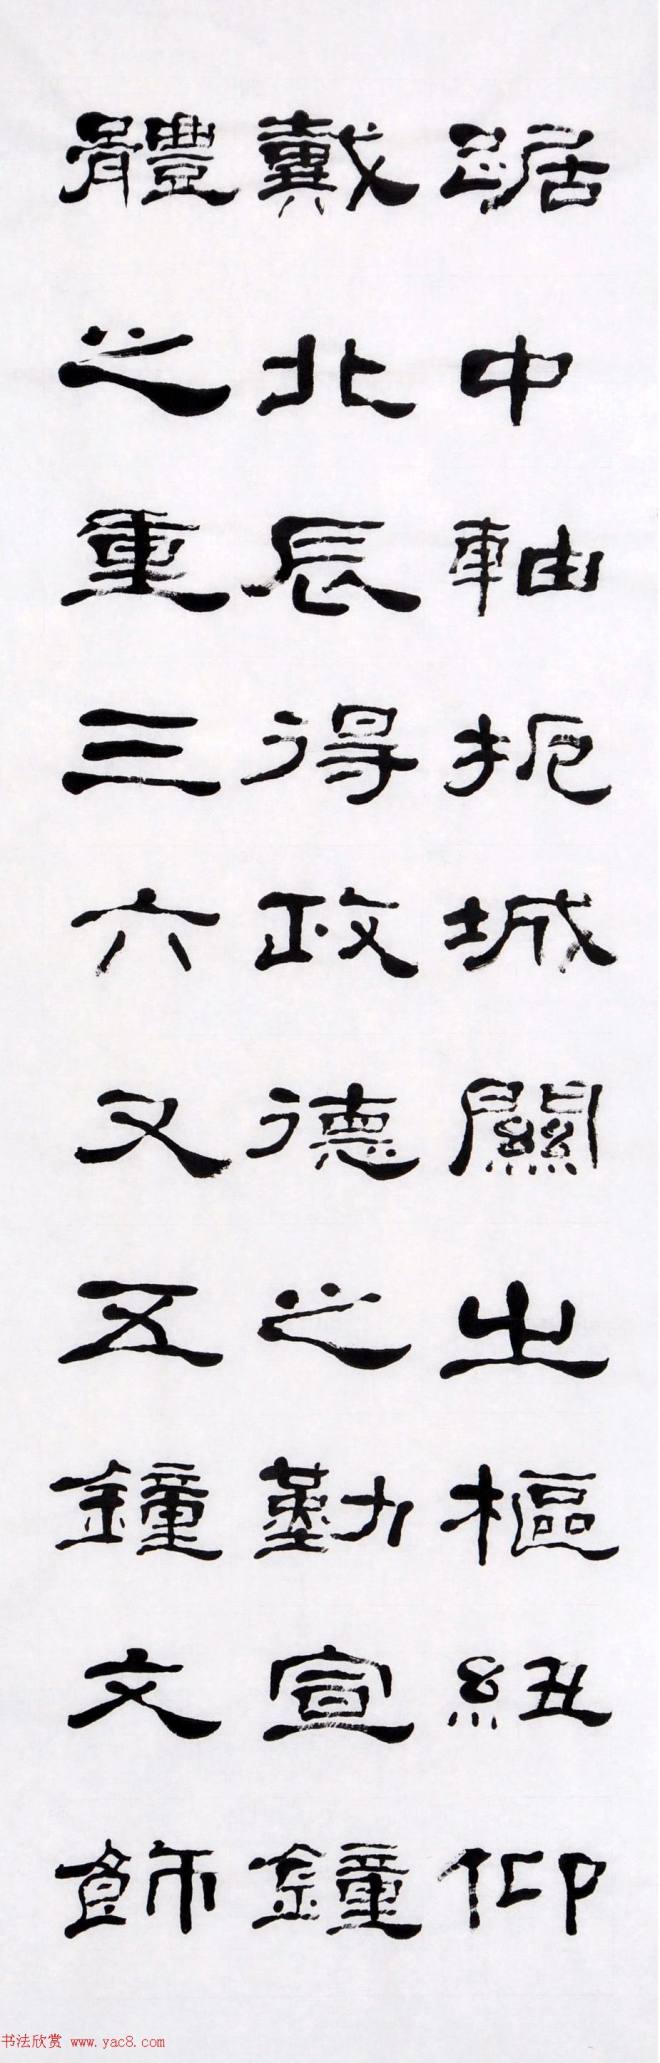 踞中軸扼城關出樞紐仰
戴北辰得政德之勤宣鐘
體之重三六又五鐘文飾
书法欣赏 www.yac8.com